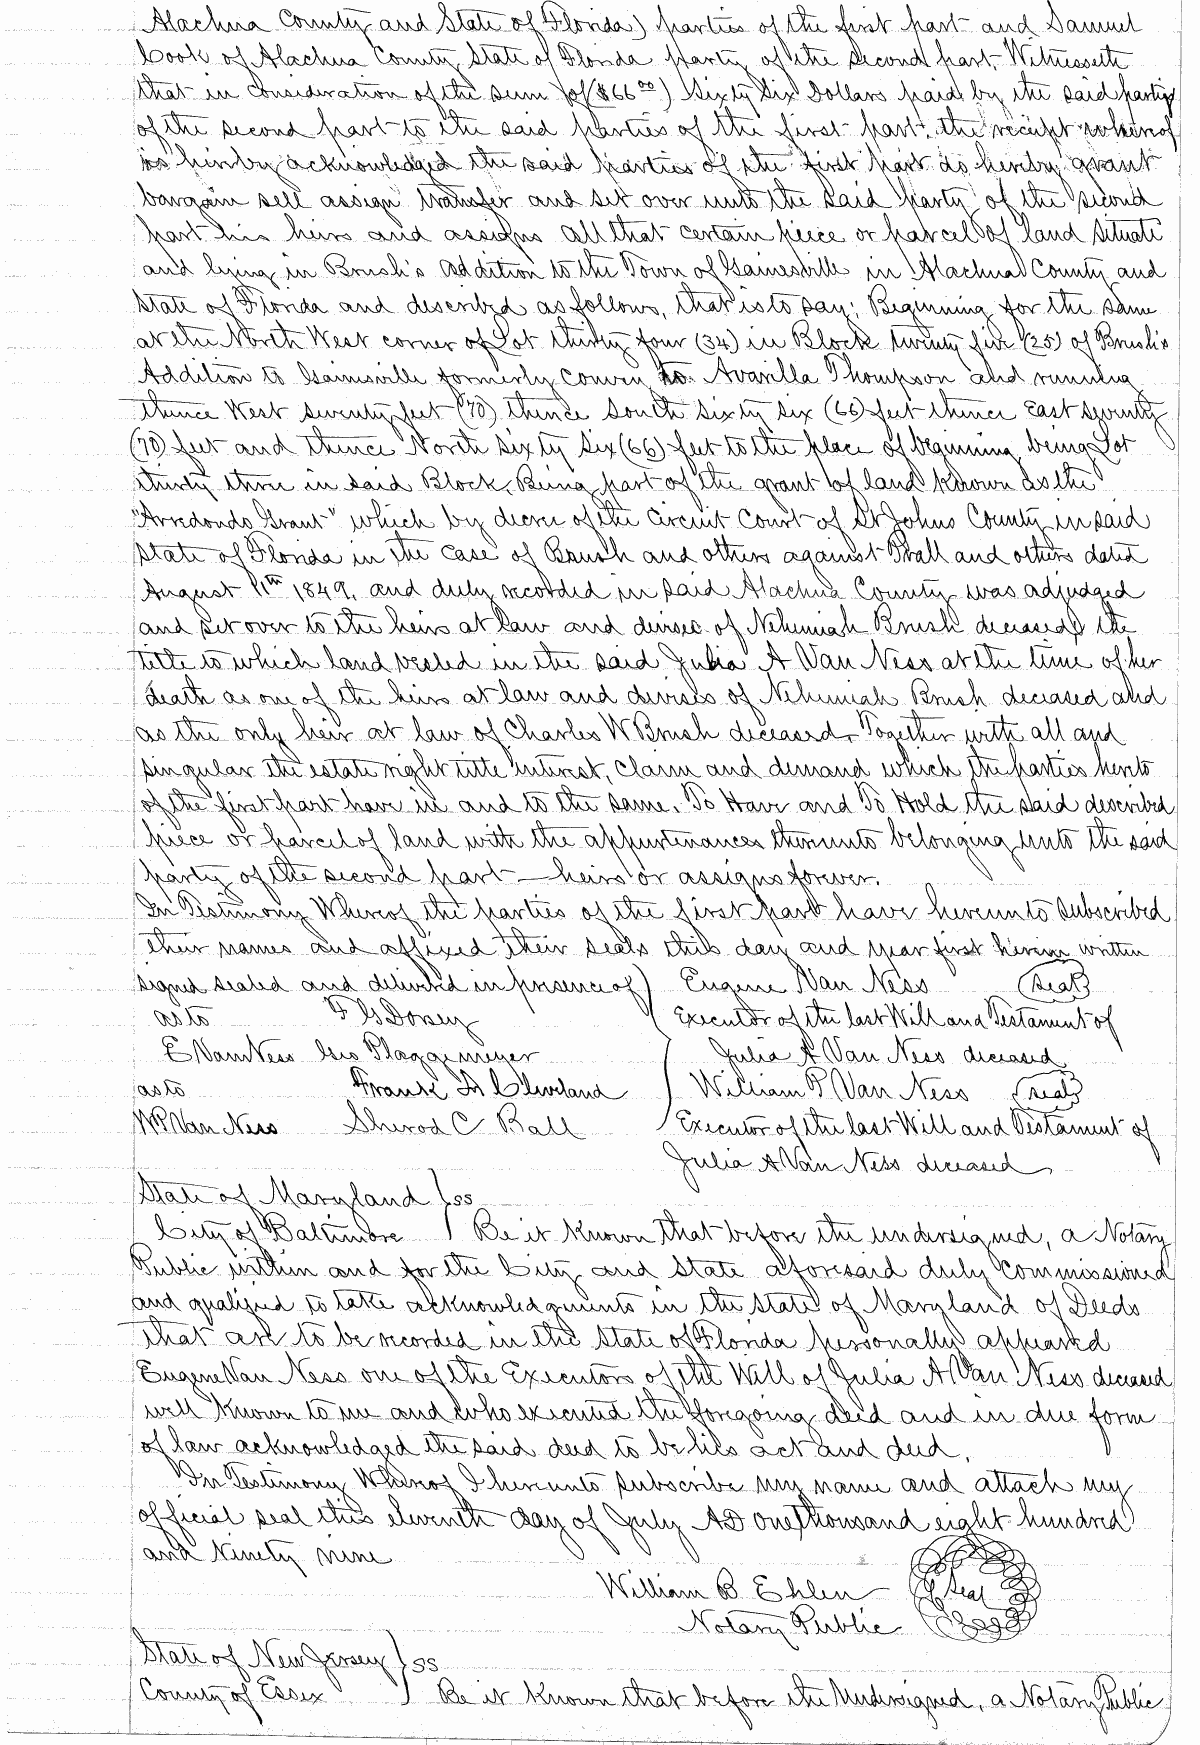 Alachua County and State of Florida) parties of the first part and Samuel
Cook of Alachua County State of Florida party of the second part, Witnesseth
that in consideration of the sum of ($66 00) Sixty Six Dollars paid by the said party
of the second part to the said parties of the first part, the receipt whereof
is hereby acknowledged the said parties of the first part do hereby grant
bargain sell assign transfer and set over unto the said party of the second
part his heirs and assigns all that certain piece or parcel of land situate
and lying in Brush's Addition to the Town of Gainesville in Alachua County and
State of Florida and described as follows, that is to say; Beginning for the same
at the North West corner of Lot thirty four (34) in Block twenty five (25) of Brush's
Addition to Gainesville formerly convey to Avarilla Thompson and running
thence West seventy feet (70) thence South Sixty six (66) feet thence East seventy
(70) feet and thence North sixty six (66) feet to the place of beginning being Lot
thirty three in said Block, Being part of the grant of land known as the
"Arredondo Grant" which by decree of the Circuit Court of St Johns County in said
State of Florida in the case of Brush and others against Thrall and others dated
August 11th 1849, and duly recorded in said Alachua County was adjudged
and set over to the heirs at law and devises of Nehemiah Brush deceased, the
title to which land vested in the said Julia A Van Ness at the time of her
death as one of the heirs at law and devises of Nehemiah Brush deceased and
as the only heir at law of Charles W Brush deceased. Together with all and
singular the estate right title interest, claim and demand which the parties hereto
of the first part have in and to the same. To Have and To Hold the said described
piece or parcel of land with the appurtenances thereunto belonging unto the said
party of the second part — heirs or assigns forever.
In Testimony Whereof the parties of the first part have hereunto subscribed
their names and affixed their seals this day and year first herein written
signed sealed and delivered in presence of) Eugene Van Ness (seal)
as to F G Dorsey Executor of the last Will and Testament of
E Van Ness Geo Plaggemeyer Julia A Van Ness deceased
as to Frank H Cleveland William P Van Ness (seal)
W P Van Ness Sherod C Ball Executor of the last Will and Testament of
Julia A Van Ness deceased
State of Maryland ) ss
City of Baltimore ) Be it known that before the undersigned, a Notary
Public within and for the City and State aforesaid duly commissioned
and qualified to take acknowledgments in the State of Maryland of Deeds
that are to be recorded in the State of Florida personally appeared
Eugene Van Ness one of the Executors of the Will of Julia A Van Ness deceased
well known to me and who executed the foregoing deed and in due form
of law acknowledged the said deed to be his act and deed.
In Testimony Whereof I hereunto subscribe my name and attach my
official seal this eleventh day of July AD one thousand eight hundred
and Ninety nine
William B Ehlen (Seal)
Notary Public
State of New Jersey ) ss
County of Essex ) Be it known that before the Undersigned, a Notary Public